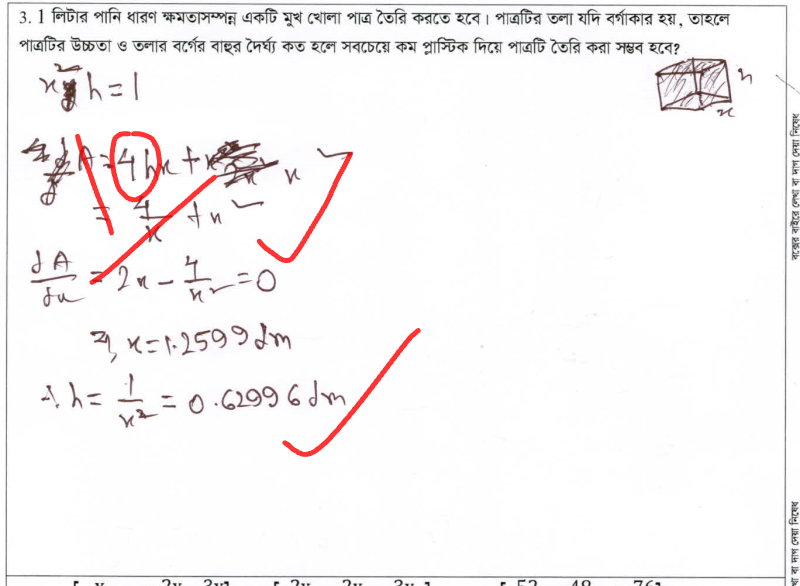 3. 1 লিটার পানি ধারণ ক্ষমতাসম্পন্ন একটি মুখ খোলা পাত্র তৈরি করতে হবে। পাত্রটির তলা যদি বর্গাকার হয়, তাহলে
পাত্রটির উচ্চতা ও তলার বর্গের বাহুর দৈর্ঘ্য কত হলে সবচেয়ে কম প্লাস্টিক দিয়ে পাত্রটি তৈরি করা সম্ভব হবে?
x² h = 1
h
x
A = 4hx + x²
= 4/x + x²
dA/dx = 2x - 4/x² = 0
বা, x = 1.2599 dm
∴ h = 1/x² = 0.62996 dm
বক্সের বাইরে লেখা বা দাগ দেয়া নিষেধ
বা দাগ দেয়া নিষেধ